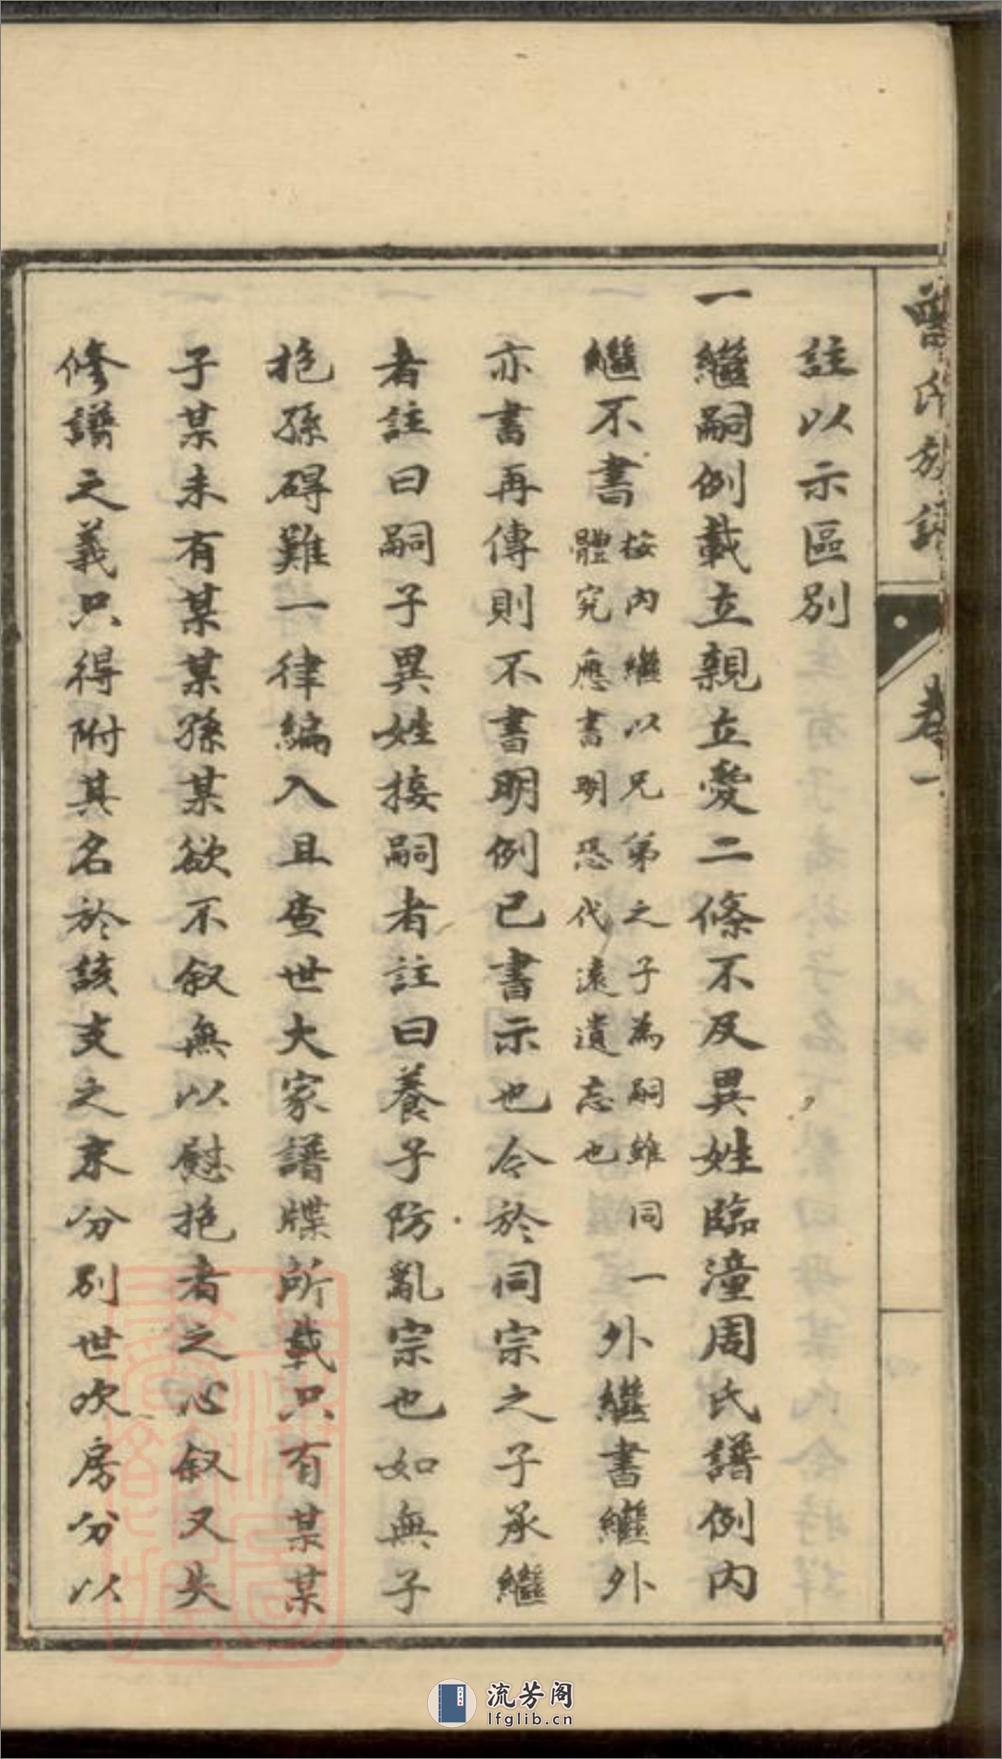 氏族譜 卷一
註以示區別
一繼嗣例載立親立愛二條不及異姓臨潼周氏譜例內
繼不書按內繼以兄弟之子為嗣雖同一體究應書明恐代遠遺忘也外繼書繼外
亦書再傳則不書明例已書示也今於同宗之子承繼
者註曰嗣子異姓接嗣者註曰養子防亂宗也如無子
抱孫碍難一律編入且查世大家譜牒所載只有某某
子某未有某某孫某欲不叙無以慰抱者之心叙又失
修譜之義只得附其名於該支之末分別世次房分以
流芳阁
lfglib.cn